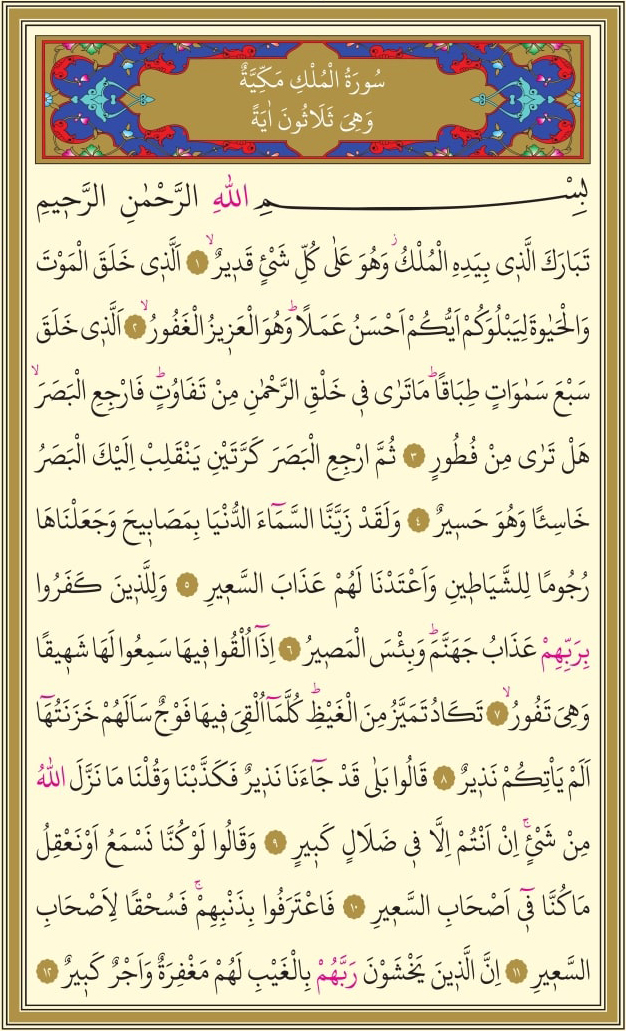 سُورَةُ الْمُلْكِ مَكِّيَّةٌ
وَهِىَ ثَلَاثُونَ اٰيَةً
بِسْمِ اللّٰهِ الرَّحْمٰنِ الرَّح۪يمِ
تَبَارَكَ الَّذ۪ى بِيَدِهِ الْمُلْكُۘ وَهُوَ عَلٰى كُلِّ شَىْءٍ قَد۪يرٌۙ ﴿١﴾ اَلَّذ۪ى خَلَقَ الْمَوْتَ
وَالْحَيٰوةَ لِيَبْلُوَكُمْ اَيُّكُمْ اَحْسَنُ عَمَلًاۜ وَهُوَ الْعَز۪يزُ الْغَفُورُۙ ﴿٢﴾ اَلَّذ۪ى خَلَقَ
سَبْعَ سَمٰوَاتٍ طِبَاقًاۜ مَا تَرٰى ف۪ى خَلْقِ الرَّحْمٰنِ مِنْ تَفَاوُتٍۜ فَارْجِعِ الْبَصَرَۙ
هَلْ تَرٰى مِنْ فُطُورٍ ﴿٣﴾ ثُمَّ ارْجِعِ الْبَصَرَ كَرَّتَيْنِ يَنْقَلِبْ اِلَيْكَ الْبَصَرُ
خَاسِئًا وَهُوَ حَس۪يرٌ ﴿٤﴾ وَلَقَدْ زَيَّنَّا السَّمَٓاءَ الدُّنْيَا بِمَصَاب۪يحَ وَجَعَلْنَاهَا
رُجُومًا لِلشَّيَاط۪ينِ وَاَعْتَدْنَا لَهُمْ عَذَابَ السَّع۪يرِ ﴿٥﴾ وَلِلَّذ۪ينَ كَفَرُوا
بِرَبِّهِمْ عَذَابُ جَهَنَّمَۜ وَبِئْسَ الْمَص۪يرُ ﴿٦﴾ اِذَٓا اُلْقُوا ف۪يهَا سَمِعُوا لَهَا شَه۪يقًا
وَهِىَ تَفُورُۙ ﴿٧﴾ تَكَادُ تَمَيَّزُ مِنَ الْغَيْظِۜ كُلَّمَٓا اُلْقِىَ ف۪يهَا فَوْجٌ سَاَلَهُمْ خَزَنَتُهَٓا
اَلَمْ يَاْتِكُمْ نَذ۪يرٌ ﴿٨﴾ قَالُوا بَلٰى قَدْ جَٓاءَنَا نَذ۪يرٌ فَكَذَّبْنَا وَقُلْنَا مَا نَزَّلَ اللّٰهُ
مِنْ شَىْءٍۚ اِنْ اَنْتُمْ اِلَّا ف۪ى ضَلَالٍ كَب۪يرٍ ﴿٩﴾ وَقَالُوا لَوْ كُنَّا نَسْمَعُ اَوْ نَعْقِلُ
مَا كُنَّا ف۪ٓى اَصْحَابِ السَّع۪يرِ ﴿١٠﴾ فَاعْتَرَفُوا بِذَنْبِهِمْۚ فَسُحْقًا لِاَصْحَابِ
السَّع۪يرِ ﴿١١﴾ اِنَّ الَّذ۪ينَ يَخْشَوْنَ رَبَّهُمْ بِالْغَيْبِ لَهُمْ مَغْفِرَةٌ وَاَجْرٌ كَب۪يرٌ ﴿١٢﴾